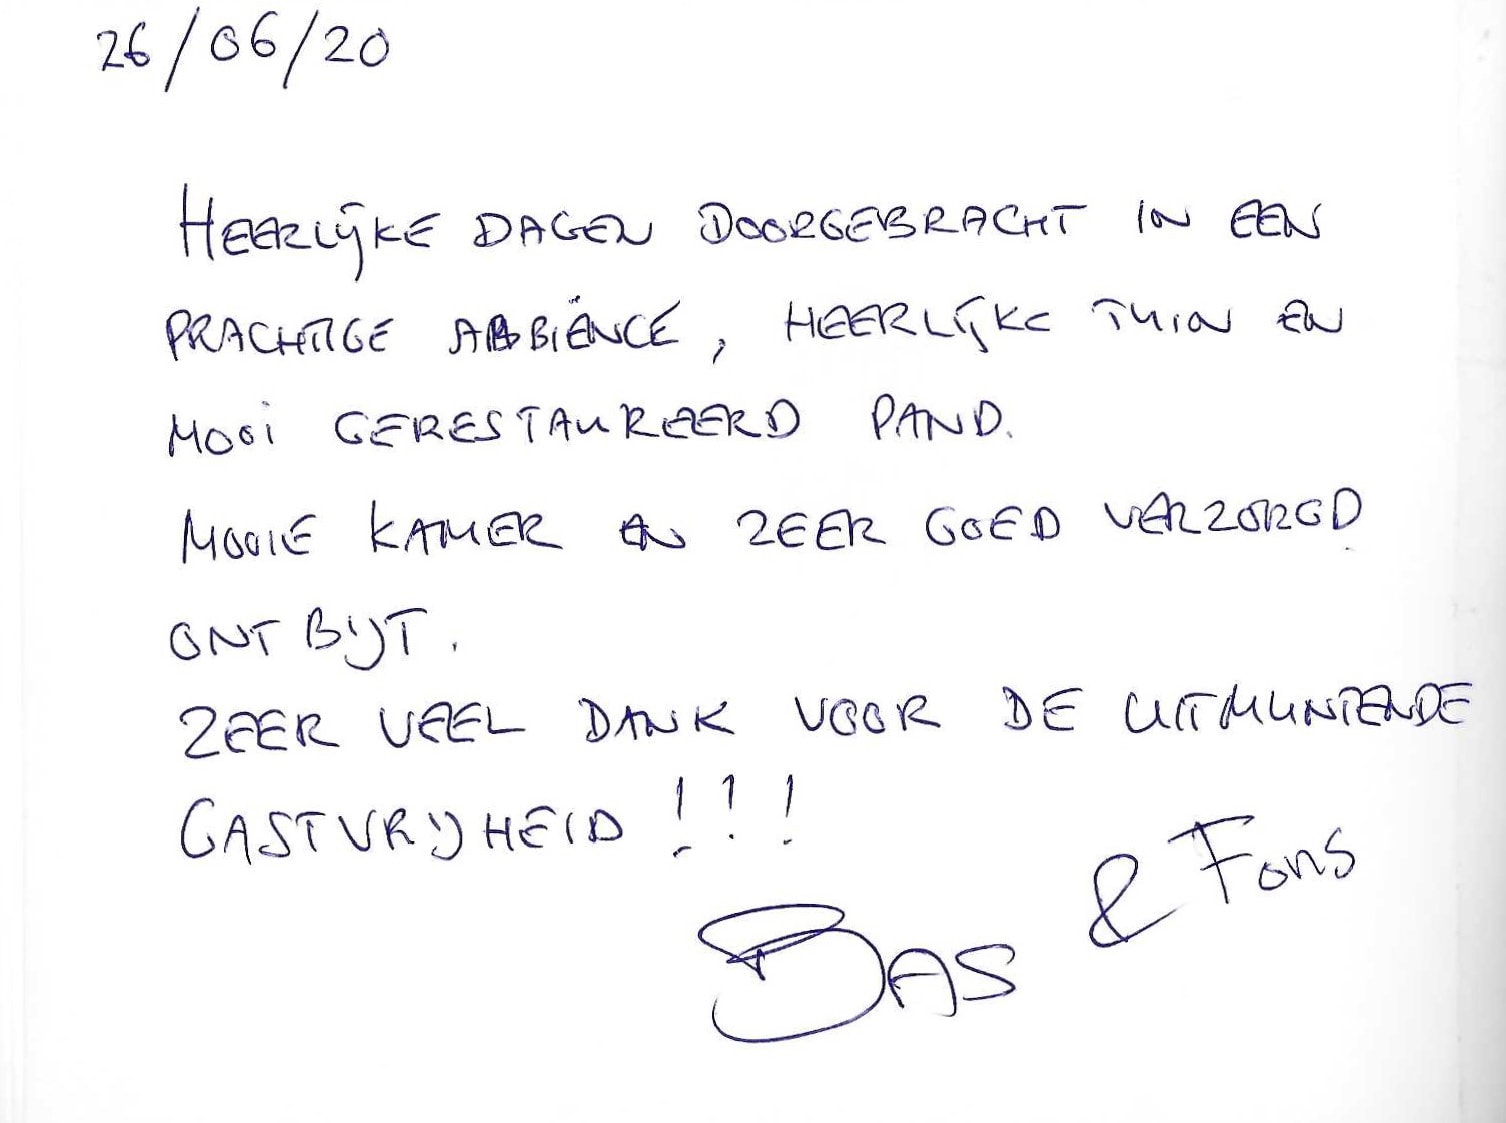 26/06/20
HEERLIJKE DAGEN DOORGEBRACHT IN EEN
PRACHTIGE ABBIËNCE, HEERLIJKE TUIN EN
MOOI GERESTAUREERD PAND.
MOOIE KAMER EN ZEER GOED VERZORGD
ONTBIJT.
ZEER VEEL DANK VOOR DE UITMUNTENDE
GASTVRIJHEID !!!
BAS & Fons